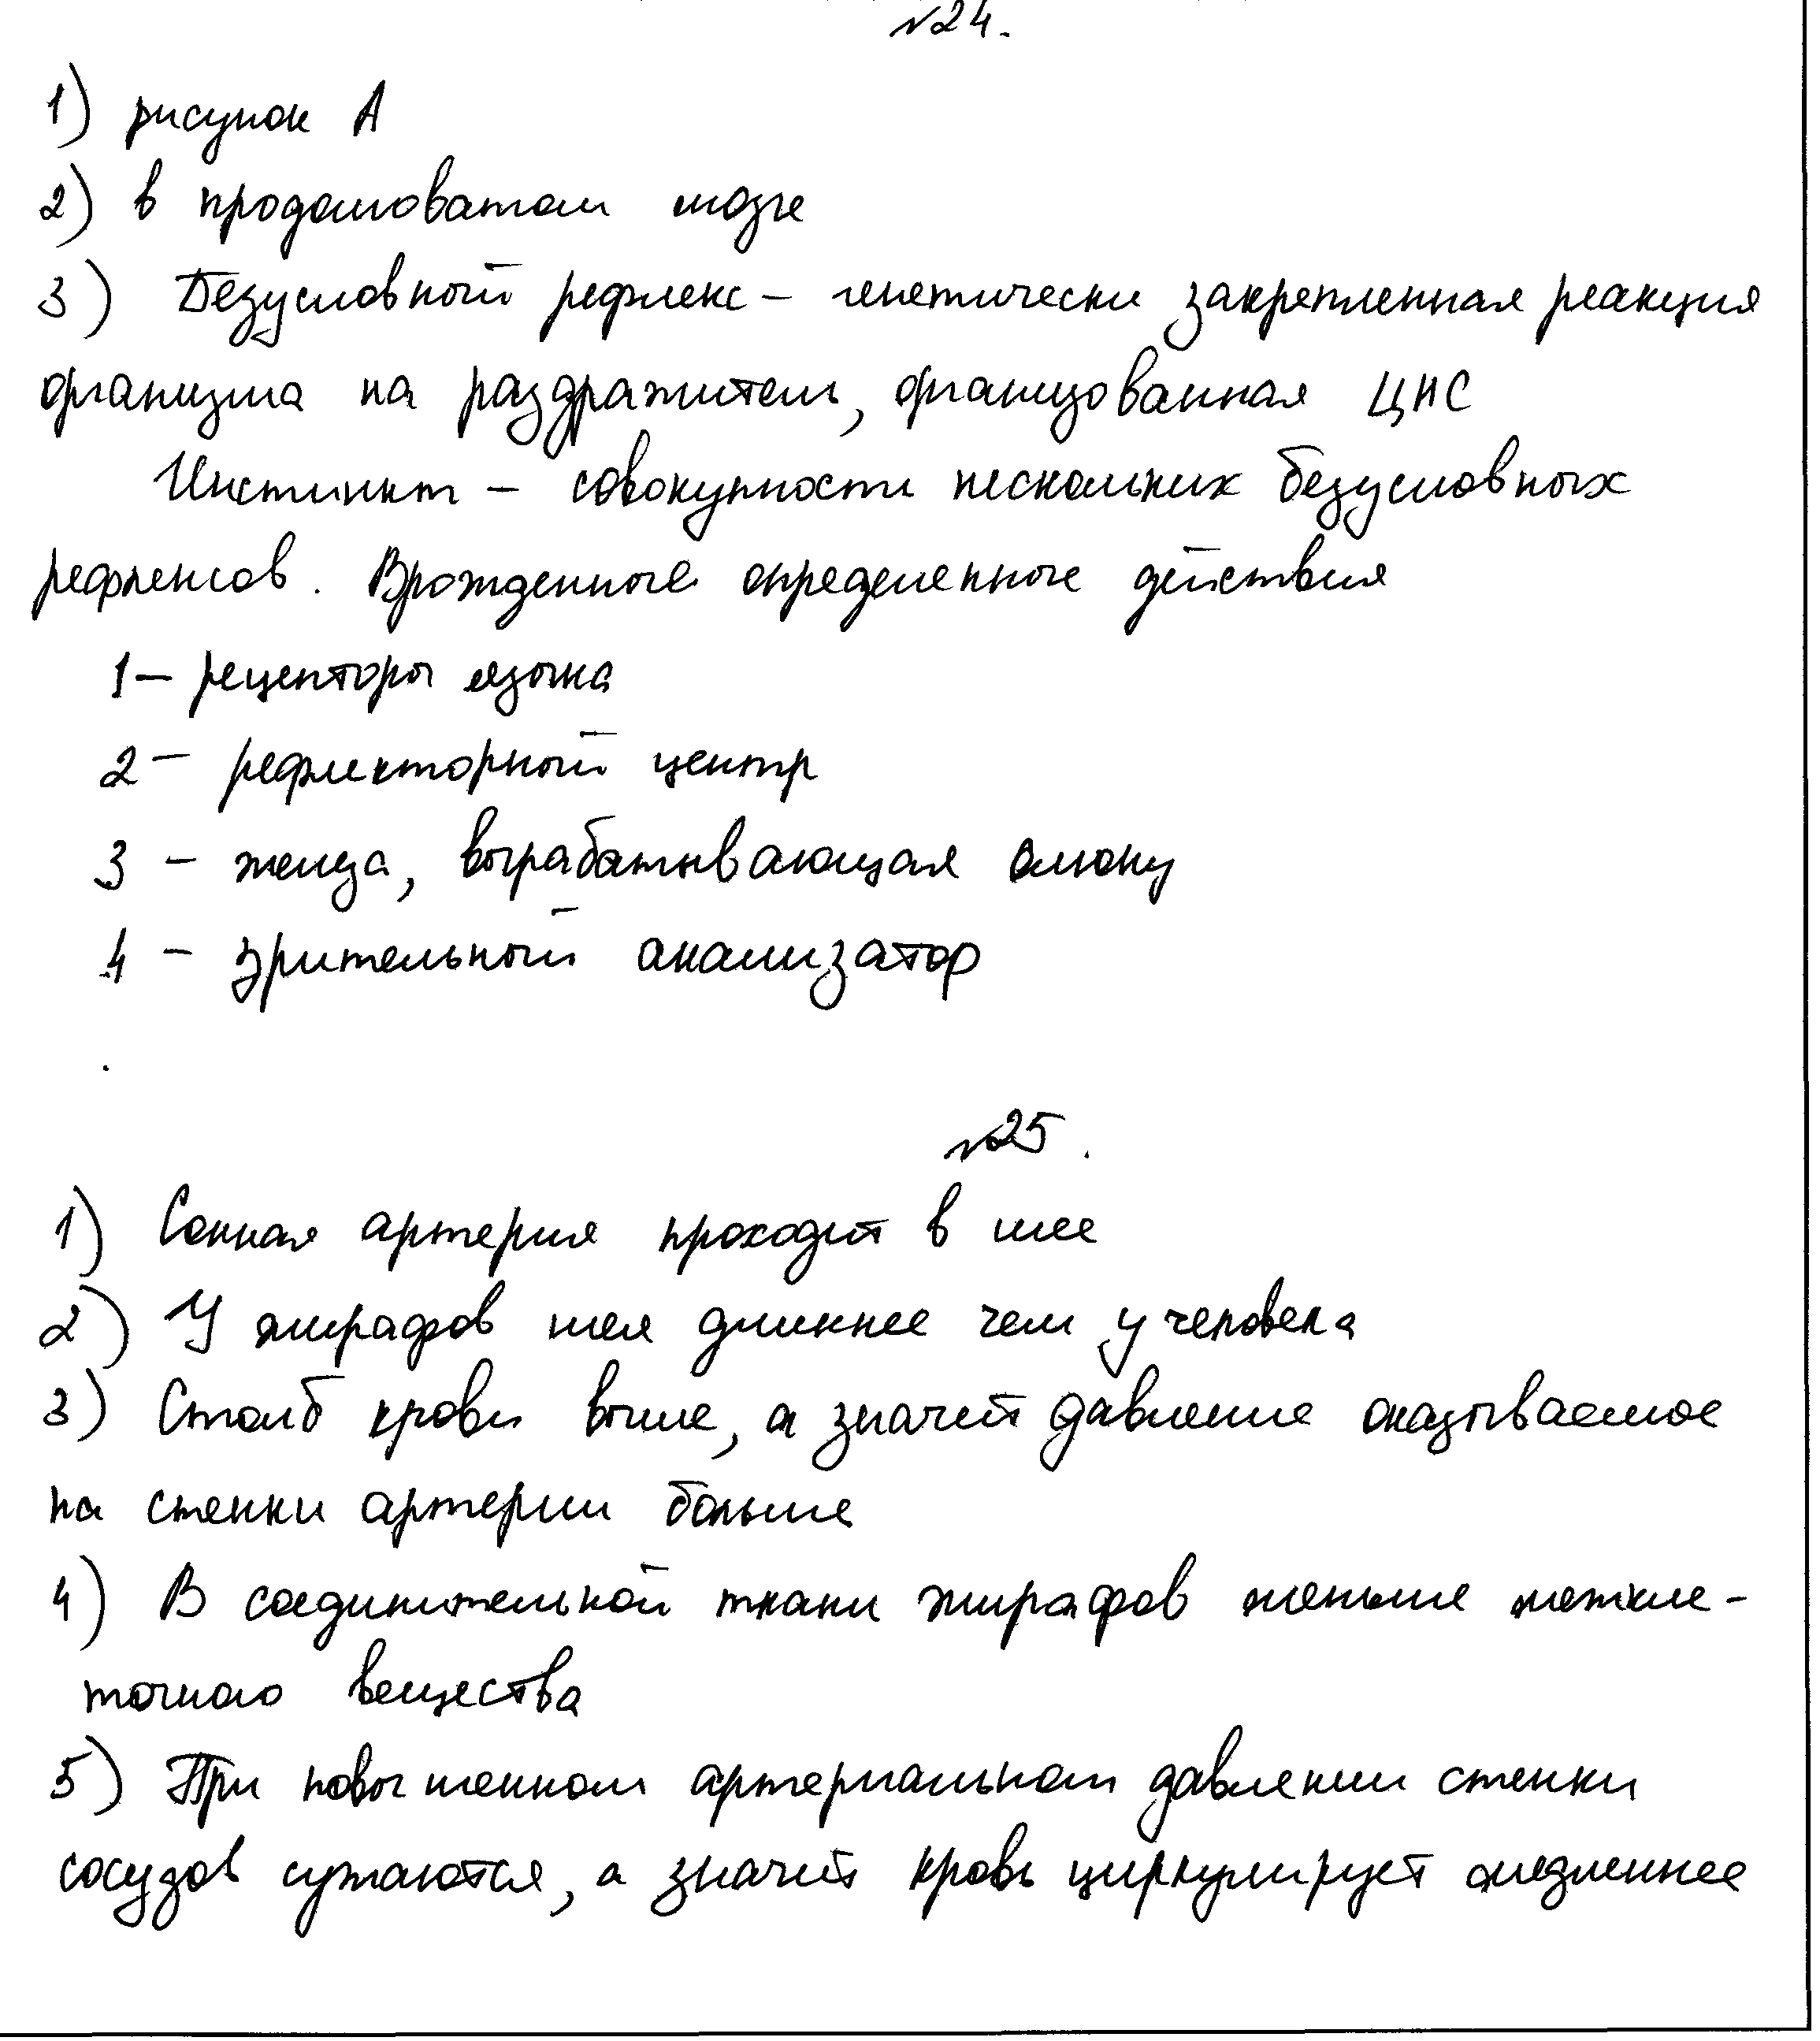 №24.
1) рисунок А
2) в продолговатом мозге
3) Безусловный рефлекс – генетически закрепленная реакция
организма на раздражитель, организованная ЦНС
Инстинкт – совокупности нескольких безусловных
рефлексов. Врожденные определенные действия
1 – рецепторы языка
2 – рефлекторный центр
3 – железа, вырабатывающая слюну
4 – зрительный анализатор
№25.
1) Сонная артерия проходит в шее
2) У жирафов шея длиннее чем у человека
3) Столб крови выше, а значит давление оказываемое
на стенки артерии больше
4) В соединительной ткани жирафов меньше межкле-
точного вещества
5) При повышенном артериальном давлении стенки
сосудов сужаются, а значит кровь циркулирует медленнее